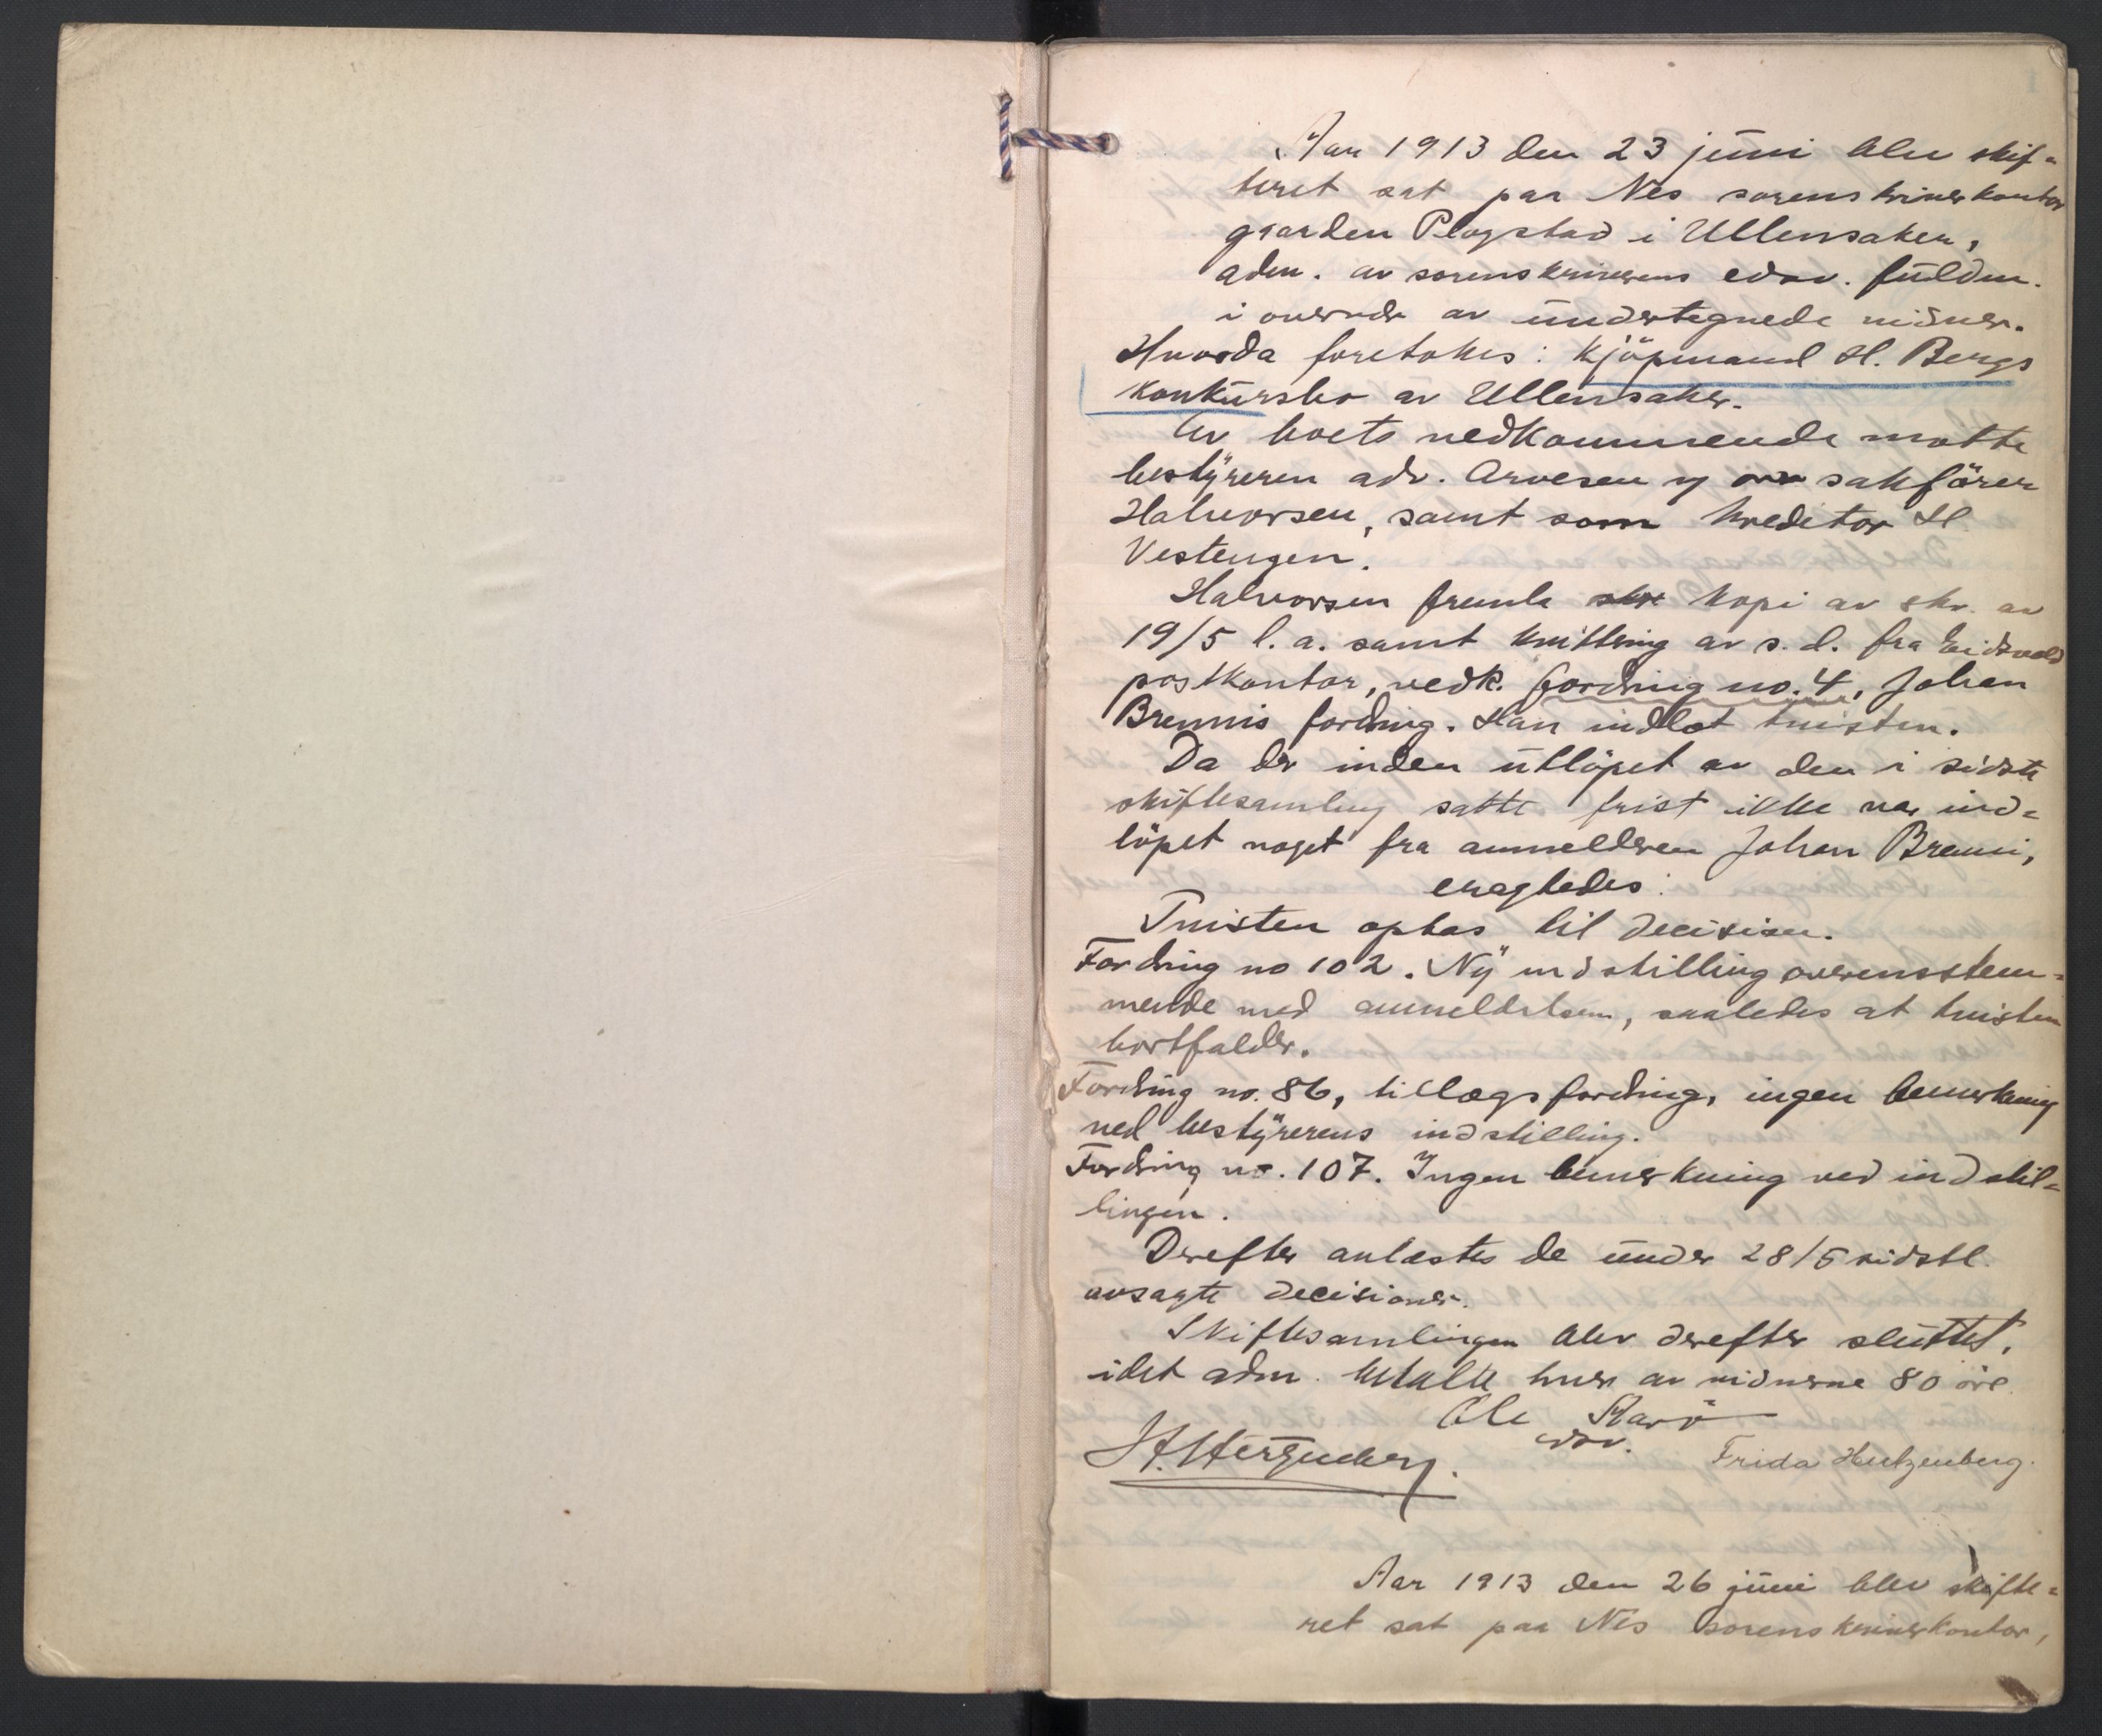 Aar 1913 den 23 juni blev skif-
teret sat paa Nes sorenskriverkontor
gaarden Plogstad i Ullensaker,
adm. av sorenskriverens edsv. fuldm.
i overvær av undertegnede vidner.
Hvorda foretokes: Kjöpmand H. Bergs
konkursbo av Ullensaker.
Av boets vedkommende mötte
bestyreren adv. Arvesen og sakförer
Halvorsen, samt som kreditor H.
Vestengen.
Halvorsen fremla kopi av skr. av
19/5 l.a. samt kvittering av s.d. fra Eidsvold
postkontor, vedk. fordring no. 4, Johan
Brennis fordring. Han indlot tvisten.
Da der inden utlöpet av den i sidste
skiftesamling satte frist ikke var ind-
löpet noget fra anmelderen Johan Brenni,
eragtedes:
Tvisten optas til decision.
Fordring no 102. Ny indstilling overensstem-
mende med anmeldelsen, saaledes at tvisten
bortfalder.
Fordring no. 86, tillægsfordring, ingen bemerkning
ved bestyrerens indstilling.
Fordring no. 107. Ingen bemerkning ved indstil-
lingen.
Derefter oplæstes de under 28/5 sidstl.
avsagte decisioner.
Skiftesamlingen blev derefter sluttet,
idet adm. betalte hver av vidnerne 80 öre.
Ole
edsv.
H. Hertzenberg.
Frida Hertzenberg.
Aar 1913 den 26 juni blev skifte-
ret sat paa Nes sorenskriverkontor,